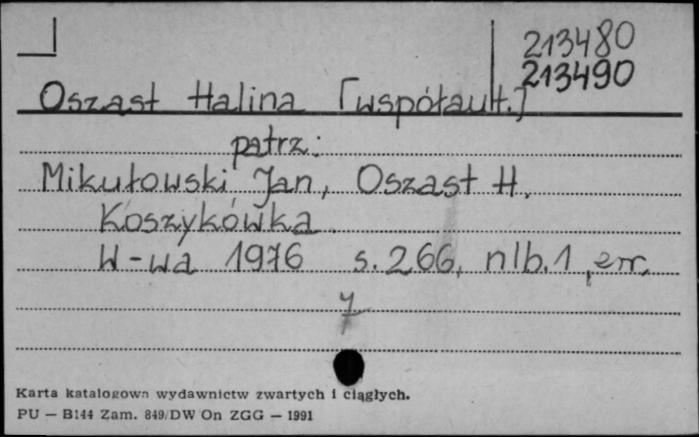 213480
213490
Oszast Halina [współaut.]
patrz:
Mikułowski Jan, Oszast H.
Koszykówka.
W-wa 1976 s. 266, nlb. 1, err.
7
Karta katalogowa wydawnictw zwartych i ciągłych.
PU — B144 Zam. 849/DW/On ZGG — 1991